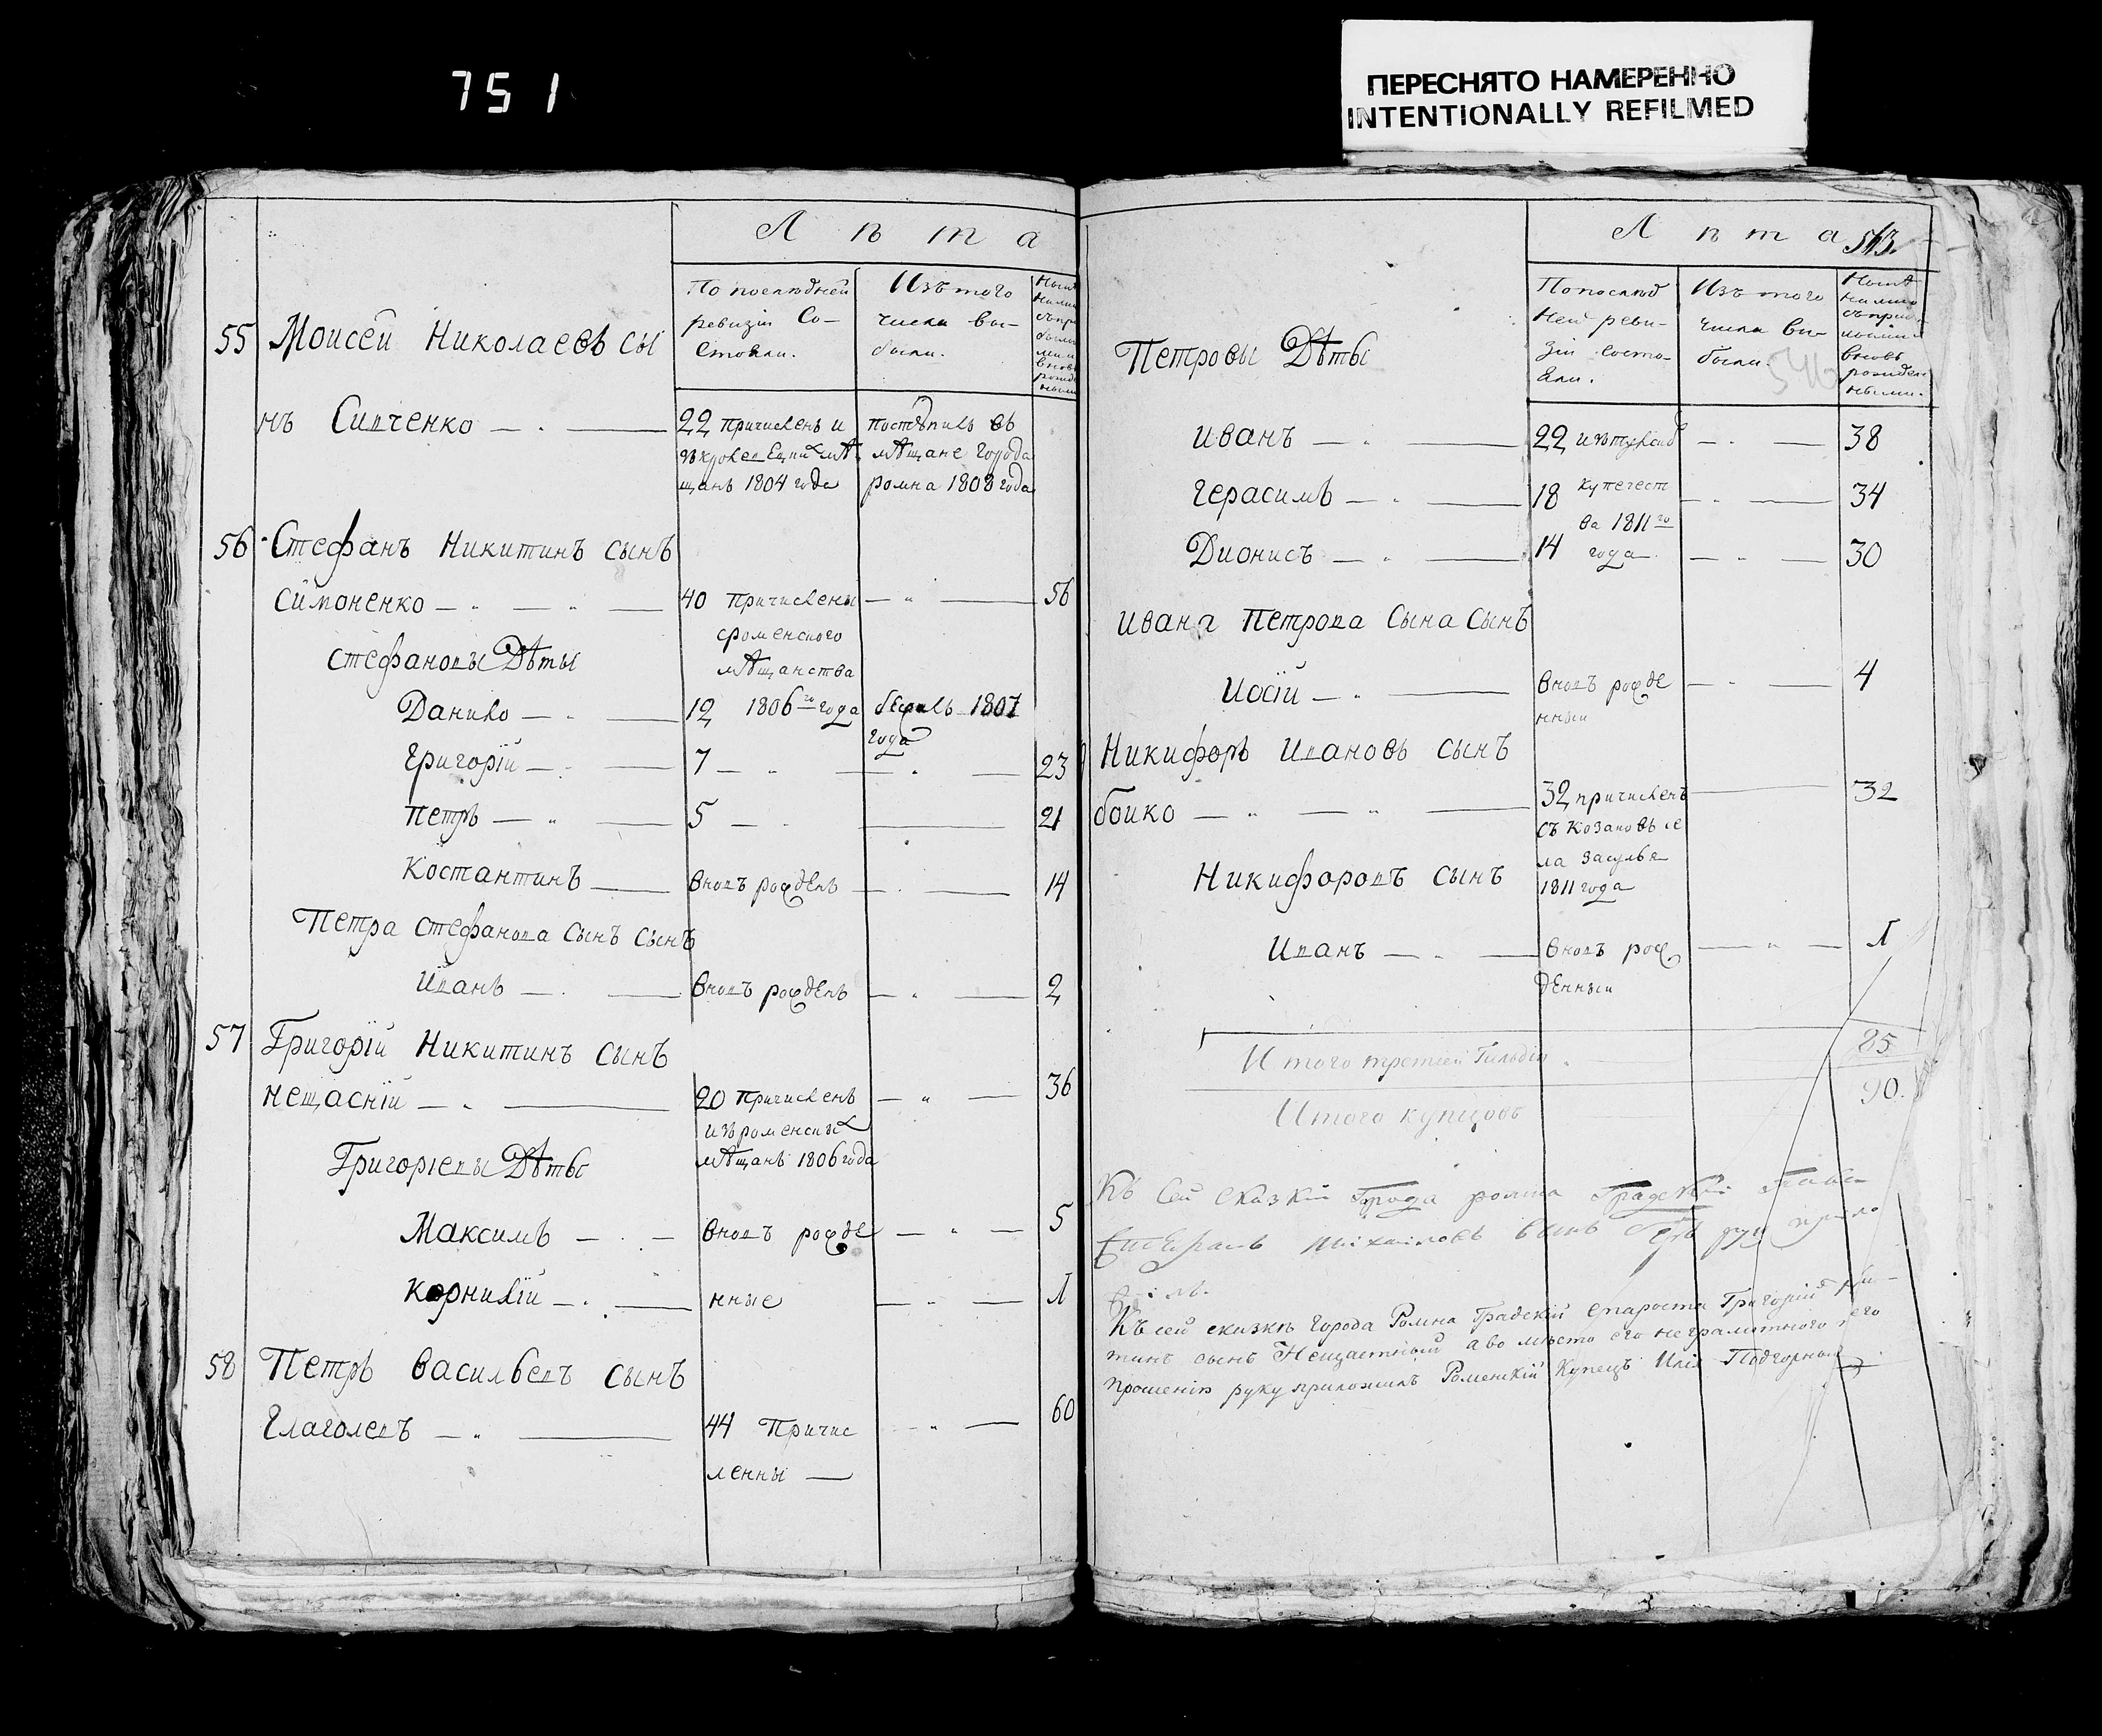 751
ПЕРЕСНЯТО НАМЕРЕННО
INTENTIONALLY REFILMED
Лѣта
По послѣдней ревизіи Со-
стояли.
Изъ того
числа вы-
были.
55 Моисей Николаевъ сы
нъ Сипченко — 22 причисленъ и
поступилъ въ
мѣщане города
щанъ 1804 года
ромна 1808 года
56 Стефанъ Никитинъ сынъ
Симоненко — 40 Причислены — 56
сроменского
мѣщанства
Стефановы Дѣты
Данило — 12 1806го года
1807
года
Григорій — 7 — 23
Петръ — 5 — 21
Костантинъ — вновъ рожденъ — 14
Петра Стефанова сынъ сынъ
Иванъ — вновъ рожденъ — 2
57 Григорій Никитинъ сынъ
Нещасній — 20 Причисленъ — 36
изъ роменскихъ
мѣщанъ 1806 года
Григоріевы Дѣты
Максимъ — вновъ рожде — 5
Корнилій — нные — Л
58 Петръ Васильевъ сынъ
Глаголевъ — 44 Причис — 60
ленны —
Лѣта
543.
По послѣд
ней реви-
зіи состо-
яли.
Изъ того
числа вы-
были.
Нынѣ
вновь
рожден
ными.
Петровы Дѣты
Иванъ — 22 — 38
Герасимъ — 18 купечест — 34
ва 1811го
Дионисъ — 14 года — 30
Ивана Петрова Сына Сынъ
Иосіи — вновъ рожде — 4
нныи
Никифоръ Ивановъ сынъ
бойко — 32 причисленъ — 32
съ Козаковъ се
ла Засулья
1811 года
Никифоровъ сынъ
Иванъ — вновъ рож — Л
денныи
Итого третей Гильдіи 85
Итого купцовъ 90.
Къ сей сказки Города ромна Градскій
Къ сей сказкѣ Города Ромна Градскій староста Григорій Ники-
тинъ сынъ Нещастный а во мѣсто его неграмотного его
прошенію руку приложилъ Роменскій Купецъ Илія Подгорный